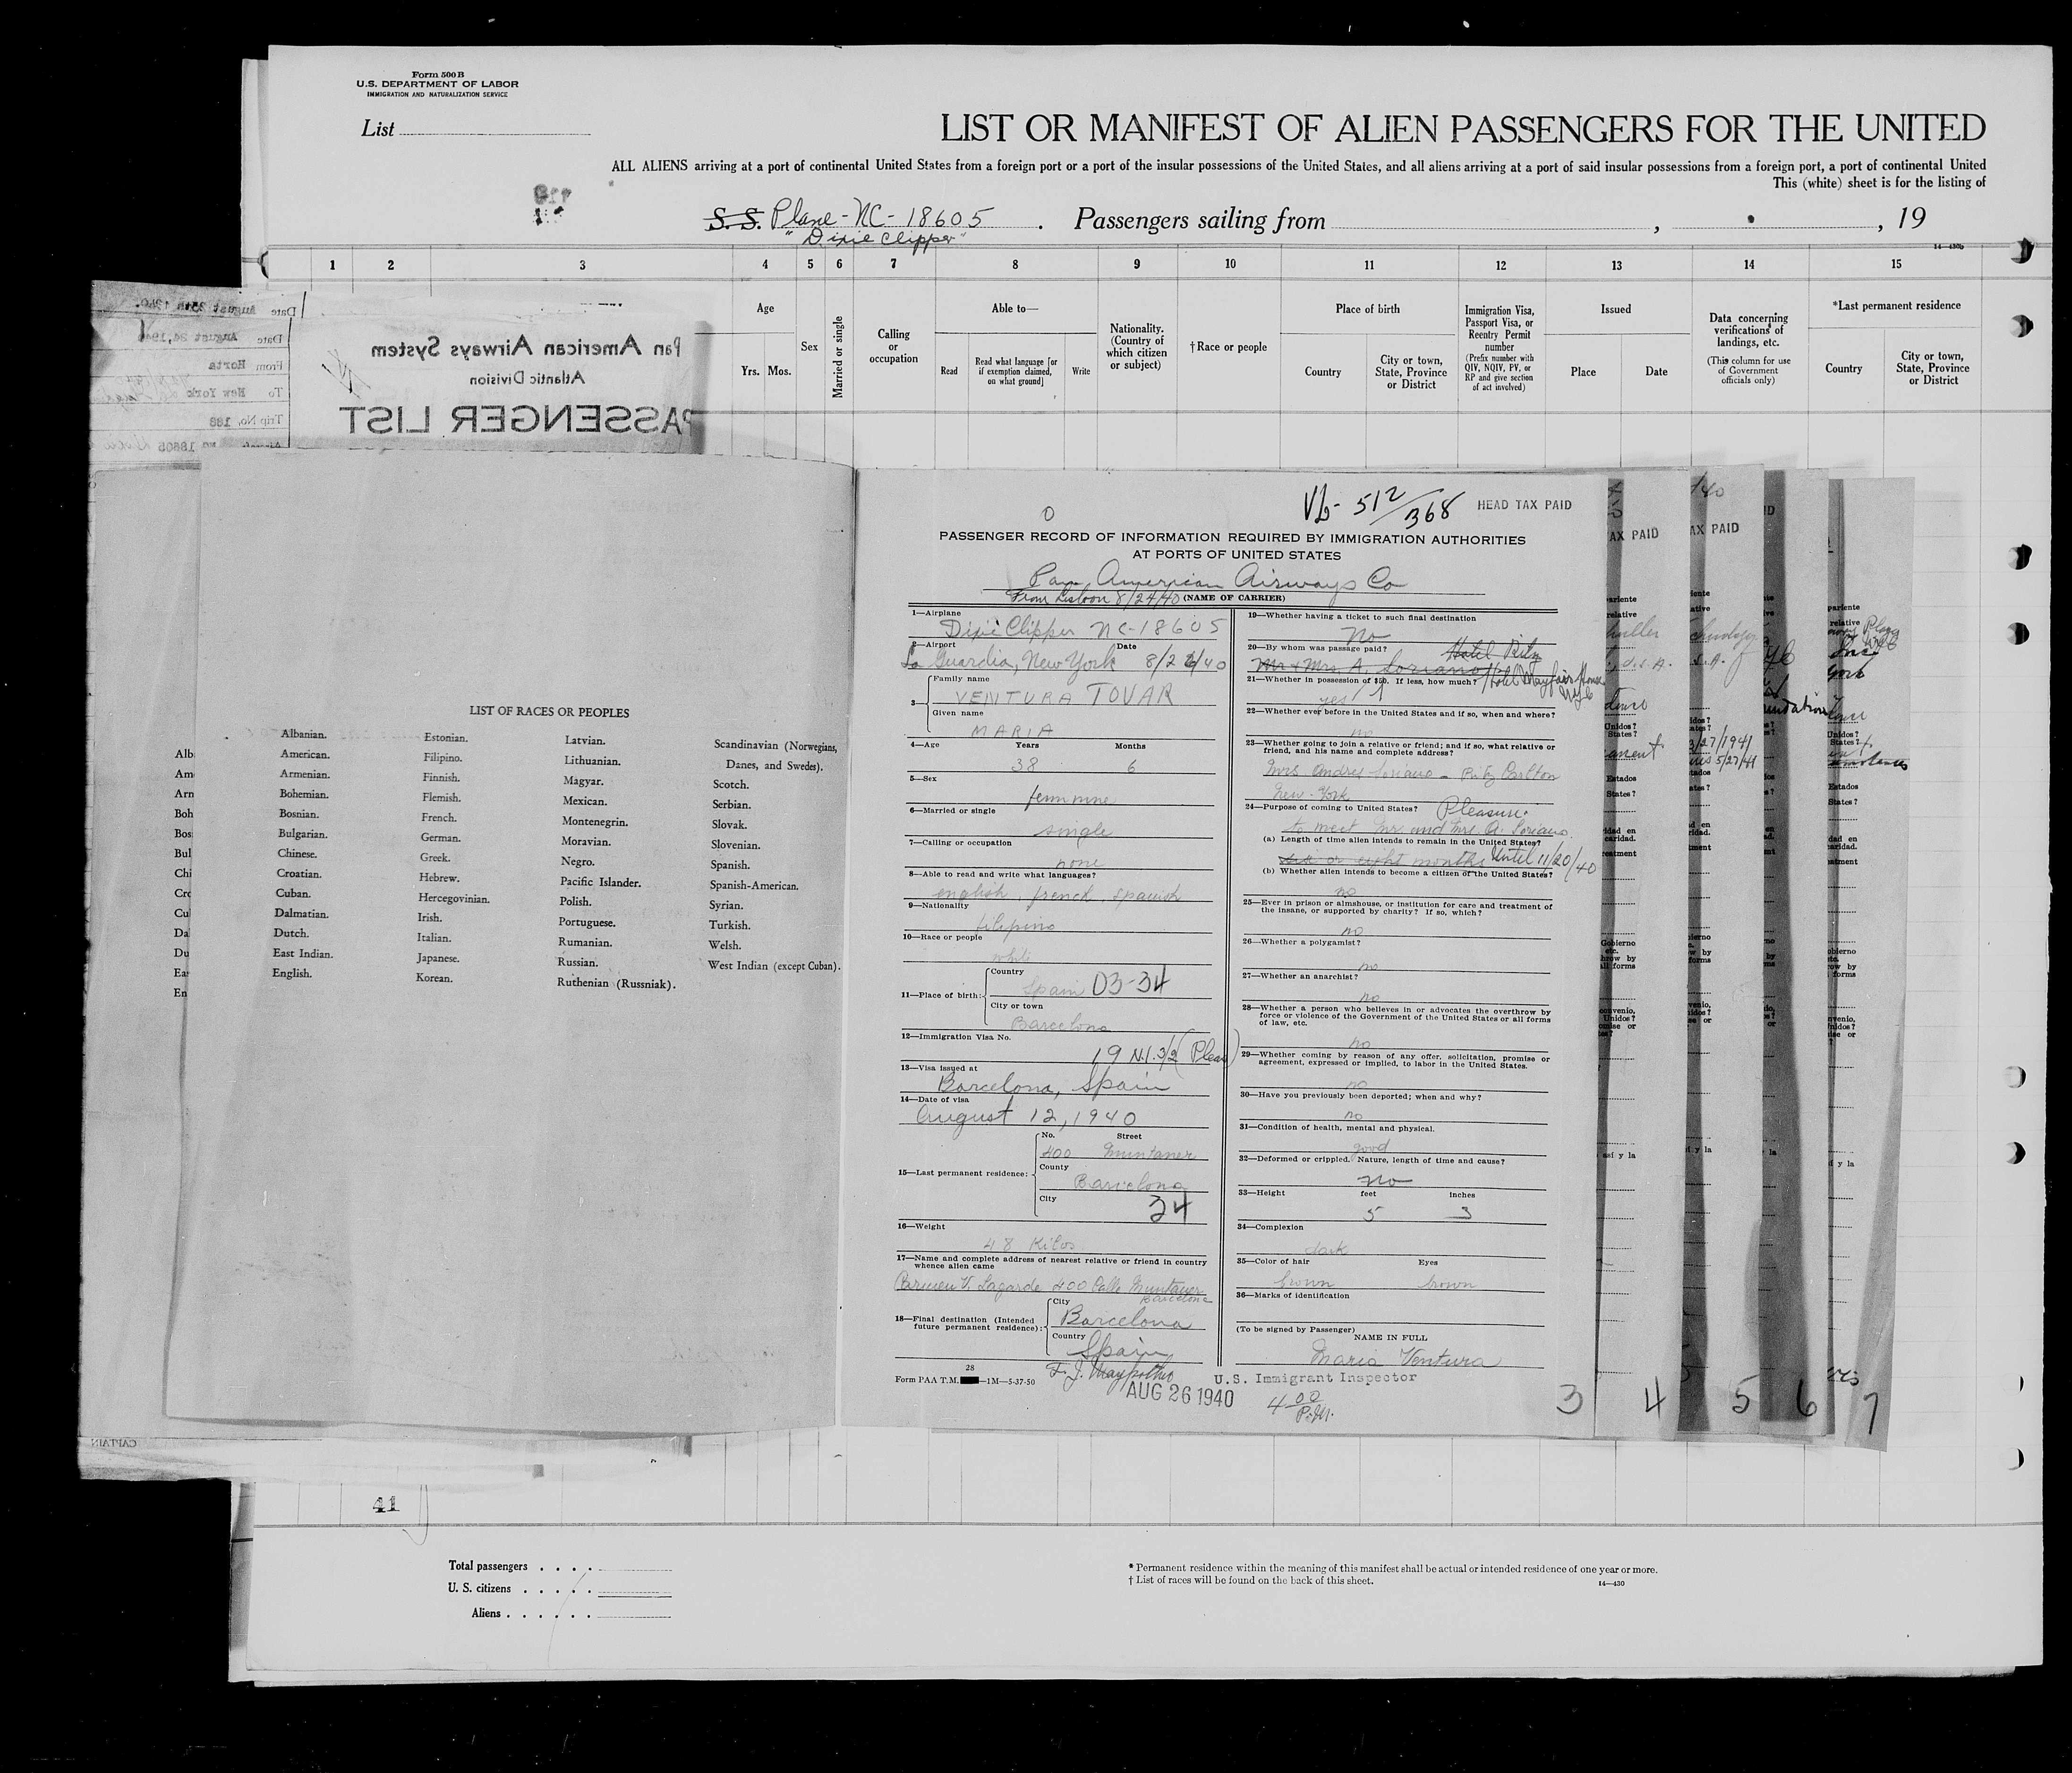 Form 500 B
U.S. DEPARTMENT OF LABOR
IMMIGRATION AND NATURALIZATION SERVICE
List
LIST OR MANIFEST OF ALIEN PASSENGERS FOR THE UNITED
ALL ALIENS arriving at a port of continental United States from a foreign port or a port of the insular possessions of the United States, and all aliens arriving at a port of said insular possessions from a foreign port, a port of continental United
This (white) sheet is for the listing of
S. S. Plane - NC - 18605 . Passengers sailing from , , 19
"Dixie Clipper"
14—430b
1 2 3 4 5 6 7 8 9 10 11 12 13 14 15
Age
Yrs. Mos.
Sex
Married or single
Calling or occupation
Able to—
Read
Read what language [or if exemption claimed, on what ground]
Write
Nationality. (Country of which citizen or subject)
†Race or people
Place of birth
Country
City or town, State, Province or District
Immigration Visa, Passport Visa, or Reentry Permit number
(Prefix number with QIV, NQIV, PV, or RP and give section of act involved)
Issued
Place
Date
Data concerning verifications of landings, etc.
(This column for use of Government officials only)
*Last permanent residence
Country
City or town, State, Province or District
Pan American Airways System
Atlantic Division
PASSENGER LIST
Date August 25th 1940.
Date August 24, 1940
From Horta
To New York
Trip No. 188
18605
LIST OF RACES OR PEOPLES
Albanian.
American.
Armenian.
Bohemian.
Bosnian.
Bulgarian.
Chinese.
Croatian.
Cuban.
Dalmatian.
Dutch.
East Indian.
English.
Estonian.
Filipino.
Finnish.
Flemish.
French.
German.
Greek.
Hebrew.
Hercegovinian.
Irish.
Italian.
Japanese.
Korean.
Latvian.
Lithuanian.
Magyar.
Mexican.
Montenegrin.
Moravian.
Negro.
Pacific Islander.
Polish.
Portuguese.
Rumanian.
Russian.
Ruthenian (Russniak).
Scandinavian (Norwegians,
Danes, and Swedes).
Scotch.
Serbian.
Slovak.
Slovenian.
Spanish.
Spanish-American.
Syrian.
Turkish.
Welsh.
West Indian (except Cuban).
CAPTAIN
0
512/368 HEAD TAX PAID
PASSENGER RECORD OF INFORMATION REQUIRED BY IMMIGRATION AUTHORITIES
AT PORTS OF UNITED STATES
Pan American Airways Co
From Lisbon 8/24/40 (NAME OF CARRIER)
1—Airplane
Dixie Clipper NC-18605
2—Airport Date
La Guardia, New York 8/26/40
3— Family name
VENTURA TOVAR
Given name
MARIA
4—Age Years Months
38 6
5—Sex
feminine
6—Married or single
single
7—Calling or occupation
none
8—Able to read and write what languages?
english, french, spanish
9—Nationality
filipino
10—Race or people
white
11—Place of birth: Country
Spain D3-34
City or town
Barcelona
12—Immigration Visa No.
19 N.I. 3/2 (Pleas)
13—Visa issued at
Barcelona, Spain
14—Date of visa
August 12, 1940
15—Last permanent residence: No. Street
400 Muntaner
County
Barcelona
City
34
16—Weight
48 Kilos
17—Name and complete address of nearest relative or friend in country
whence alien came
Carmen V. Lagarde 400 Calle Muntaner
Barcelona
18—Final destination (Intended
future permanent residence): City
Barcelona
Country
Spain
28
Form PAA T.M. —1M—5-37-50
19—Whether having a ticket to such final destination
no
20—By whom was passage paid? Hotel Ritz
Mr & Mrs A. Soriano
21—Whether in possession of $50. If less, how much? Hotel Mayfair House
yes NYC
22—Whether ever before in the United States and if so, when and where?
no
23—Whether going to join a relative or friend; and if so, what relative or
friend, and his name and complete address?
Mrs Andres Soriano - Ritz Carlton
New-York
24—Purpose of coming to United States? Pleasure
to meet Mr and Mrs. A. Soriano.
(a) Length of time alien intends to remain in the United States?
six or eight months Until 11/20/40
(b) Whether alien intends to become a citizen of the United States?
no
25—Ever in prison or almshouse, or institution for care and treatment of
the insane, or supported by charity? If so, which?
no
26—Whether a polygamist?
no
27—Whether an anarchist?
no
28—Whether a person who believes in or advocates the overthrow by
force or violence of the Government of the United States or all forms
of law, etc.
no
29—Whether coming by reason of any offer, solicitation, promise or
agreement, expressed or implied, to labor in the United States.
no
30—Have you previously been deported; when and why?
no
31—Condition of health, mental and physical.
good
32—Deformed or crippled. Nature, length of time and cause?
no
33—Height feet inches
5 3
34—Complexion
dark
35—Color of hair Eyes
brown brown
36—Marks of identification
(To be signed by Passenger)
NAME IN FULL
Maria Ventura
U.S. Immigrant Inspector
AUG 26 1940
4 00 P.M.
3 4 5 6 7
41
Total passengers
U. S. citizens
Aliens
* Permanent residence within the meaning of this manifest shall be actual or intended residence of one year or more.
† List of races will be found on the back of this sheet.
14—430